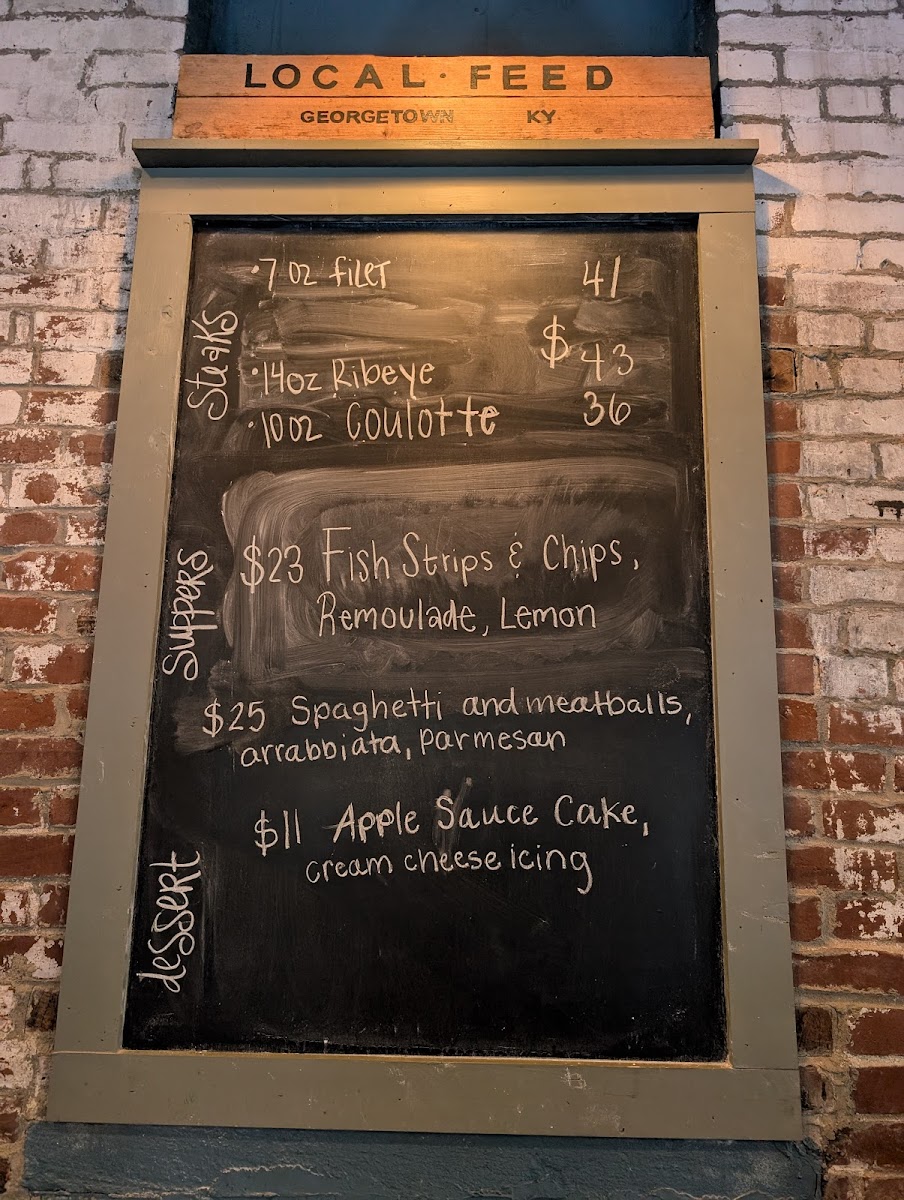 LOCAL · FEED
GEORGETOWN KY
Steaks
·7 oz filet 41
$
·14oz Ribeye 43
·10oz Coulotte 36
Suppers
$23 Fish Strips & Chips,
Remoulade, Lemon
$25 Spaghetti and meatballs,
arrabbiata, parmesan
dessert
$11 Apple Sauce Cake,
cream cheese icing